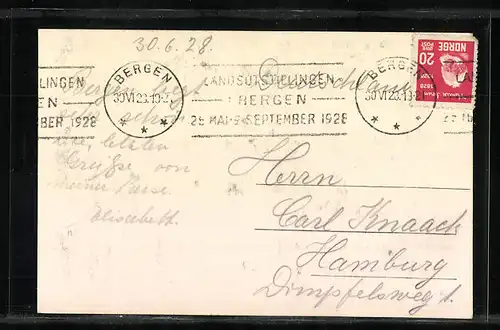 30.6.28.
BERGEN
30 VI 28 19-2
LLINGEN
EN
BER 1928
LANDSUTSTILLINGEN
I BERGEN
25 MAI-9 SEPTEMBER 1928
BERGEN
30 VI 28 19-2
NORGE
20
1828
1928
Deutschland
letzten
Grüße von
meiner Reise.
Elisabeth.
Herrn
Carl Knaack
Hamburg
Dimpfelsweg 1